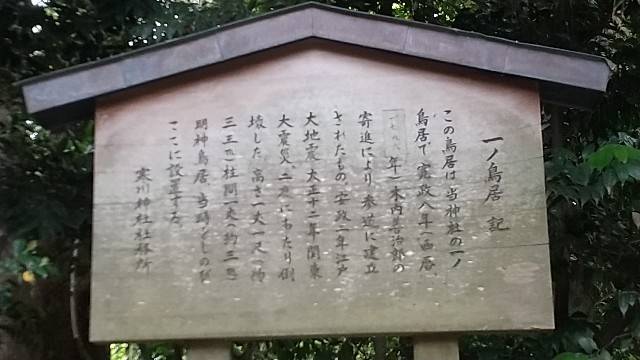 一ノ鳥居 記
この鳥居は 当神社の一ノ
鳥居で 寛政八年(西暦
一七九八年) 木内
寄進により 参道に建立
されたもの 安政二年江戸
大地震 大正十二年 関東
大震災 二度にわたり倒
壊した 高さ一丈一尺(約
三三 柱間一丈(約三
明神鳥居 当時
ここに設置する
寒川神社社務所